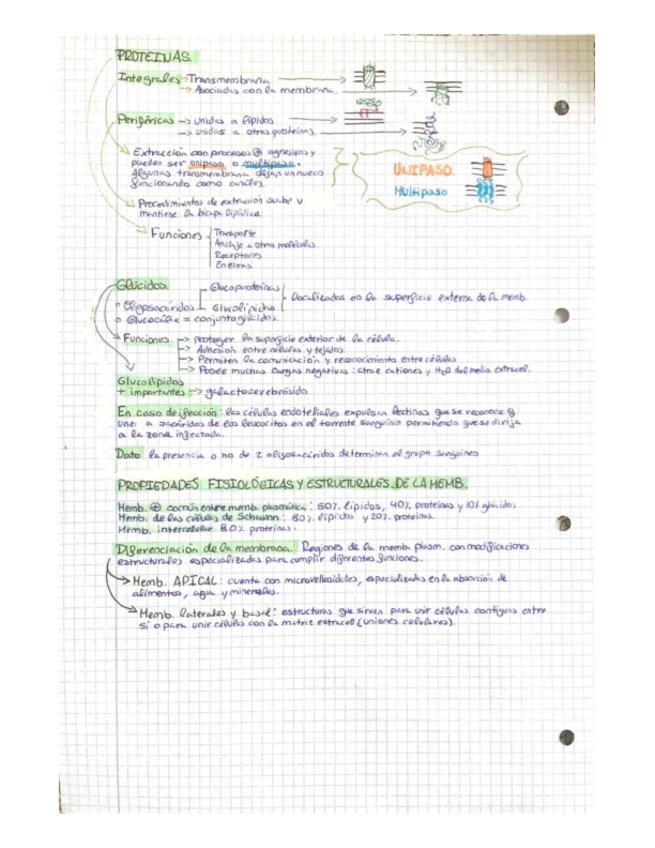 PROTEINAS.
Integrales → Transmembrana
→ Asociadas con la membrana.
Periféricas → unidas a lípidos
→ unidas a otras proteínas.
Extracción con procesos ⊕ agresivos y
pueden ser unipaso o multipaso.
Algunas transmembrana dejan un hueco
funcionando como canales.
UNIPASO.
Multipaso
Procedimientos de extracción suave y
mantiene la bicapa lipídica.
Funciones
Transporte
Anclaje a otras moléculas
Receptores
Enzimas
Glúcidos.
Oligosacáridos
Glucoproteínas
Glucolípidos
localizados en la superficie externa de la memb.
Glucocálix = conjunto glúcidos.
Funciones → proteger la superficie exterior de la célula.
→ Adhesión entre células y tejidos.
→ Permiten la comunicación y reconocimiento entre células
→ Posee muchas cargas negativas: atrae cationes y H₂O del medio extracel.
Glucolípidos
+ importantes → galactocerebrósido
En caso de infección: las células endoteliales expulsan lectinas que se reconoce y
une a azúcares de los leucocitos en el torrente sanguíneo permitiendo que se dirija
a la zona infectada.
Dato la presencia o no de 2 oligosacáridos determinan el grupo sanguíneo
PROPIEDADES FISIOLÓGICAS Y ESTRUCTURALES DE LA MEMB.
Memb. ⊕ común entre memb. plasmática: 50% lípidos, 40% proteínas y 10% glúcidos
Memb. de las células de Schwann: 80% lípidos y 20% proteínas.
Memb. intercelular 80% proteínas.
Diferenciación de la membrana. Regiones de la memb. plasm. con modificaciones
estructurales especializadas para cumplir diferentes funciones.
→ Memb. APICAL: cuenta con microvellosidades, especializadas en la absorción de
alimentos, agua y minerales.
→ Memb. laterales y basal: estructuras que sirven para unir células contiguas entre
sí o para unir células con la matriz extracel (uniones celulares).